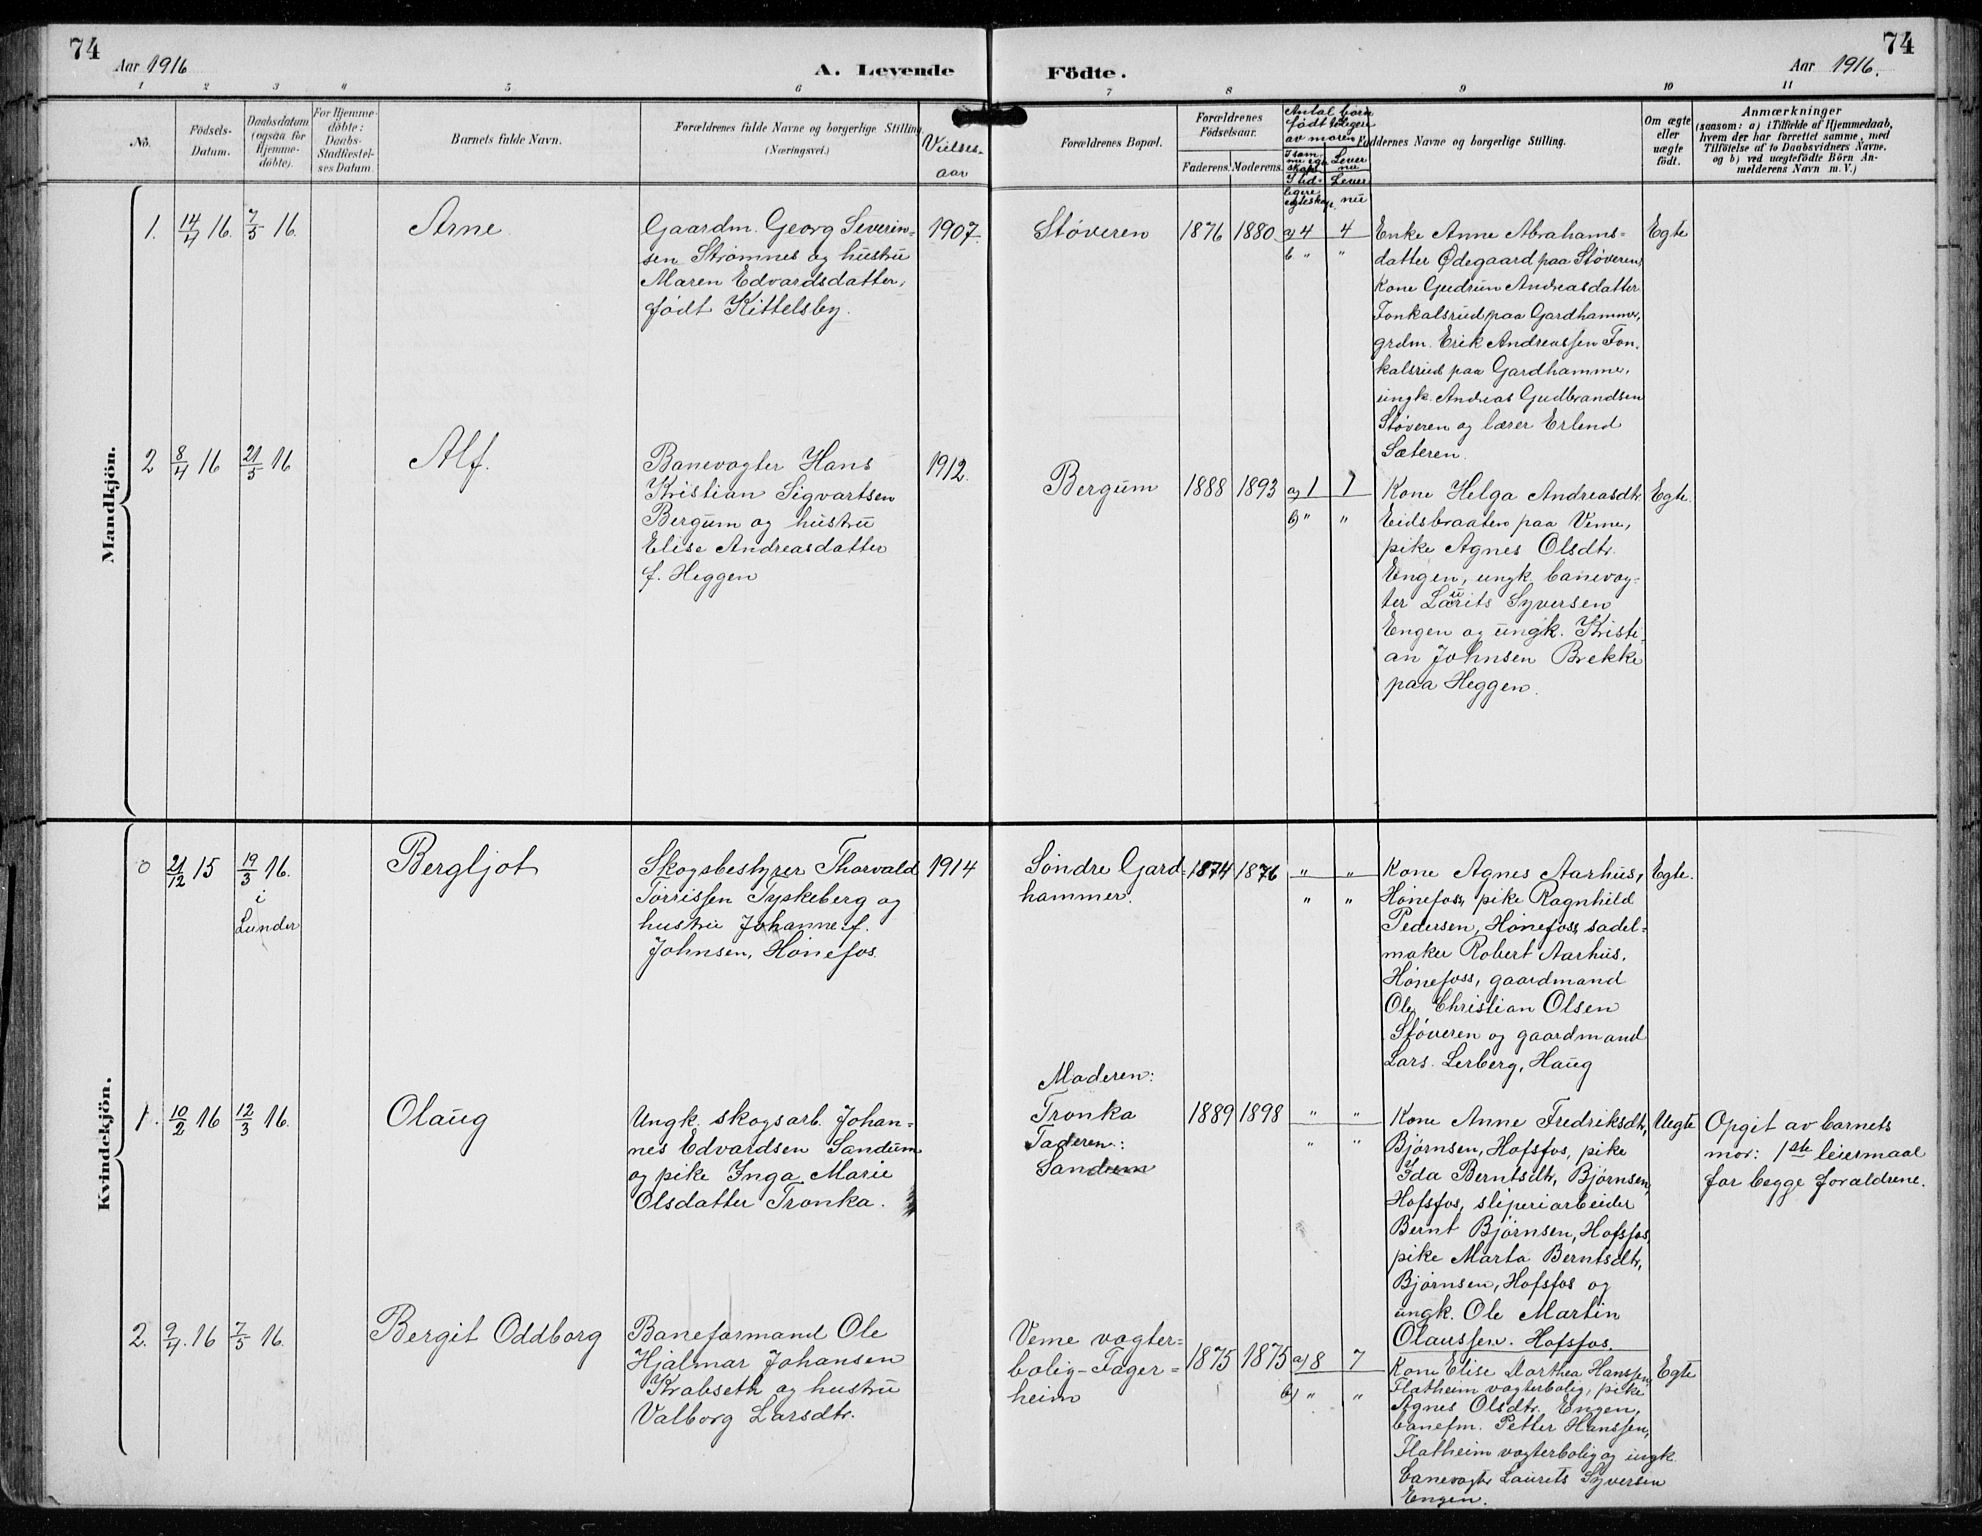 74
Aar 1916
A. Levende
Födte.
74
Aar 1916.
1 2 3 4 5 6 7 8 9 10 11
No.
Fødsels-
Datum.
Daabsdatum
(ogsaa for
Hjemme-
døbte).
For Hjemme-
døbte:
Daabs-
Stadfæstel-
ses Datum.
Barnets fulde Navn.
Forældrenes fulde Navne og borgerlige Stilling
(Næringsvei.)
Vielses-
aar
Forældrenes Bopæl.
Forældrenes
Fødselsaar.
Faderens. Moderens.
Antal børn
født tidligere
av moren
Faddernes Navne og borgerlige Stilling.
Om ægte
eller
uægte
født.
Anmærkninger
(saasom: a) i Tilfælde af Hjemmedaab,
hvem der har forrettet samme, med
Tilføielse af to Daabsvidners Navne.
og b) ved uægtefødte Börn An-
melderens Navn m. V.)
Mandkjön.
1. 14/4 16. 7/5 16.
Arne.
Gaardm. Georg Severin-
sen Strømnes og hustru
Maren Edvardsdatter,
født Kittelsby.
1907.
Støveren
1876 1880 a) 4 4
b " "
Enke Anne Abrahams-
datter Ødegaard paa Støveren,
Kone Gudrun Andreasdatter
Fonkalsrud paa Gardhammer,
grdm. Erik Andreassen Fon-
kalsrud paa Gardhammer,
ungk. Andreas Gudbrandsen
Støveren og lærer Erlend
Sæteren.
Egte
2 8/4 16 21/5 16
Alf.
Banevogter Hans
Kristian Sigvartsen
Bergum og hustru
Elise Andreasdatter
f. Heggen
1912.
Bergum
1888 1893 a) 1 1
b) " "
Kone Helga Andreasdtr.
Eidsbraaten paa Veme,
pike Agnes Olsdtr.
Engen, ungk. banevog-
ter Laurits Syversen
Engen og ungk. Kristi-
an Johnsen Brekke
paa Heggen.
Egte.
Kvindekjön.
0 21/12 15 19/3 16.
i
Lunder
Bergljot
Skogsbestyrer Thorvald
Torrissen Tyskeberg og
hustru Johanne f.
Johnsen, Hønefos.
1914
Søndre Gard-
hammer.
1874 1876 " "
" "
Kone Agnes Aarhus,
Hønefoss, pike Ragnhild
Pedersen, Hønefoss, sadel-
maker Robert Aarhus,
Hønefoss, gaardmand
Ole Christian Olsen
Støveren og gaardmand
Lars Lerberg, Haug
Egte.
1. 10/2 16 12/3 16.
Olaug
Ungk. skogsarb. Johan-
nes Edvardsen Sandum
og pike Inga Marie
Olsdatter Tronka.
Moderen:
Tronka
Faderen:
Sandum
1889 1898 " "
" "
Kone Anne Fredriksdtr,
Bjørnsen, Hofsfos, pike
Ida Berntsdtr, Bjørnsen,
Hofsfos, sliperiarbeider
Bernt Bjørnsen, Hofsfos,
pike Marta Berntsdtr,
Bjørnsen, Hofsfos og
ungk. Ole Martin
Olaussen. Hofsfos.
Uegte
Opgit av barnets
mor: 1ste leiermaal
for begge forældrene.
2. 9/4. 16 7/5 16.
Bergit Oddborg
Baneformand Ole
Hjalmar Johansen
Krabseth og hustru
Valborg Larsdtr.
Veme vogter-
bolig-Fager-
heim
1875 1875 a) 8 7
b) " "
Kone Elise Dorthea Hanssen,
Flatheim vogterbolig, pike
Agnes Olsdtr. Engen,
banefm. Petter Hanssen,
Flatheim vogterbolig og ungk.
banevogter Laurits Syversen
Engen.
Egte